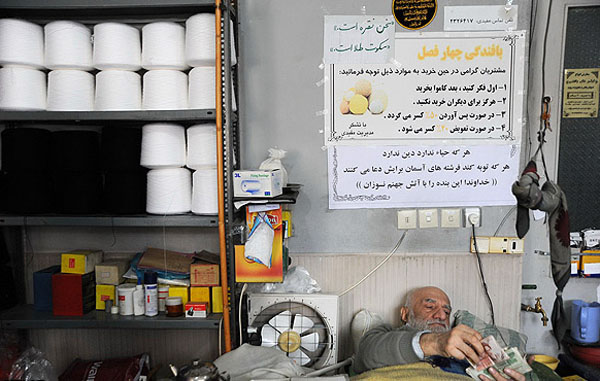 تلفن تماس مفیدی: ۴۳۲۶۴۱۷
«سخن نقره است،»
«سکوت طلا است،»
بافندگی چهار فصل
مشتریان گرامی در حین خرید به موارد ذیل توجه فرمائید:
۱- اول فکر کنید ، بعد کاموا بخرید
۲- هرگز برای دیگران خرید نکنید .
۳- در صورت پس آوردن ٪۵۰ کسر می گردد .
۴- در صورت تعویض ٪۲۰ کسر می شود .
با تشکر
مدیریت مفیدی
هر که حیاء ندارد دین ندارد
هر که توبه کند فرشته های آسمان برایش دعا می کنند
(( خداوندا این بنده را با آتش جهنم نسوزان ))